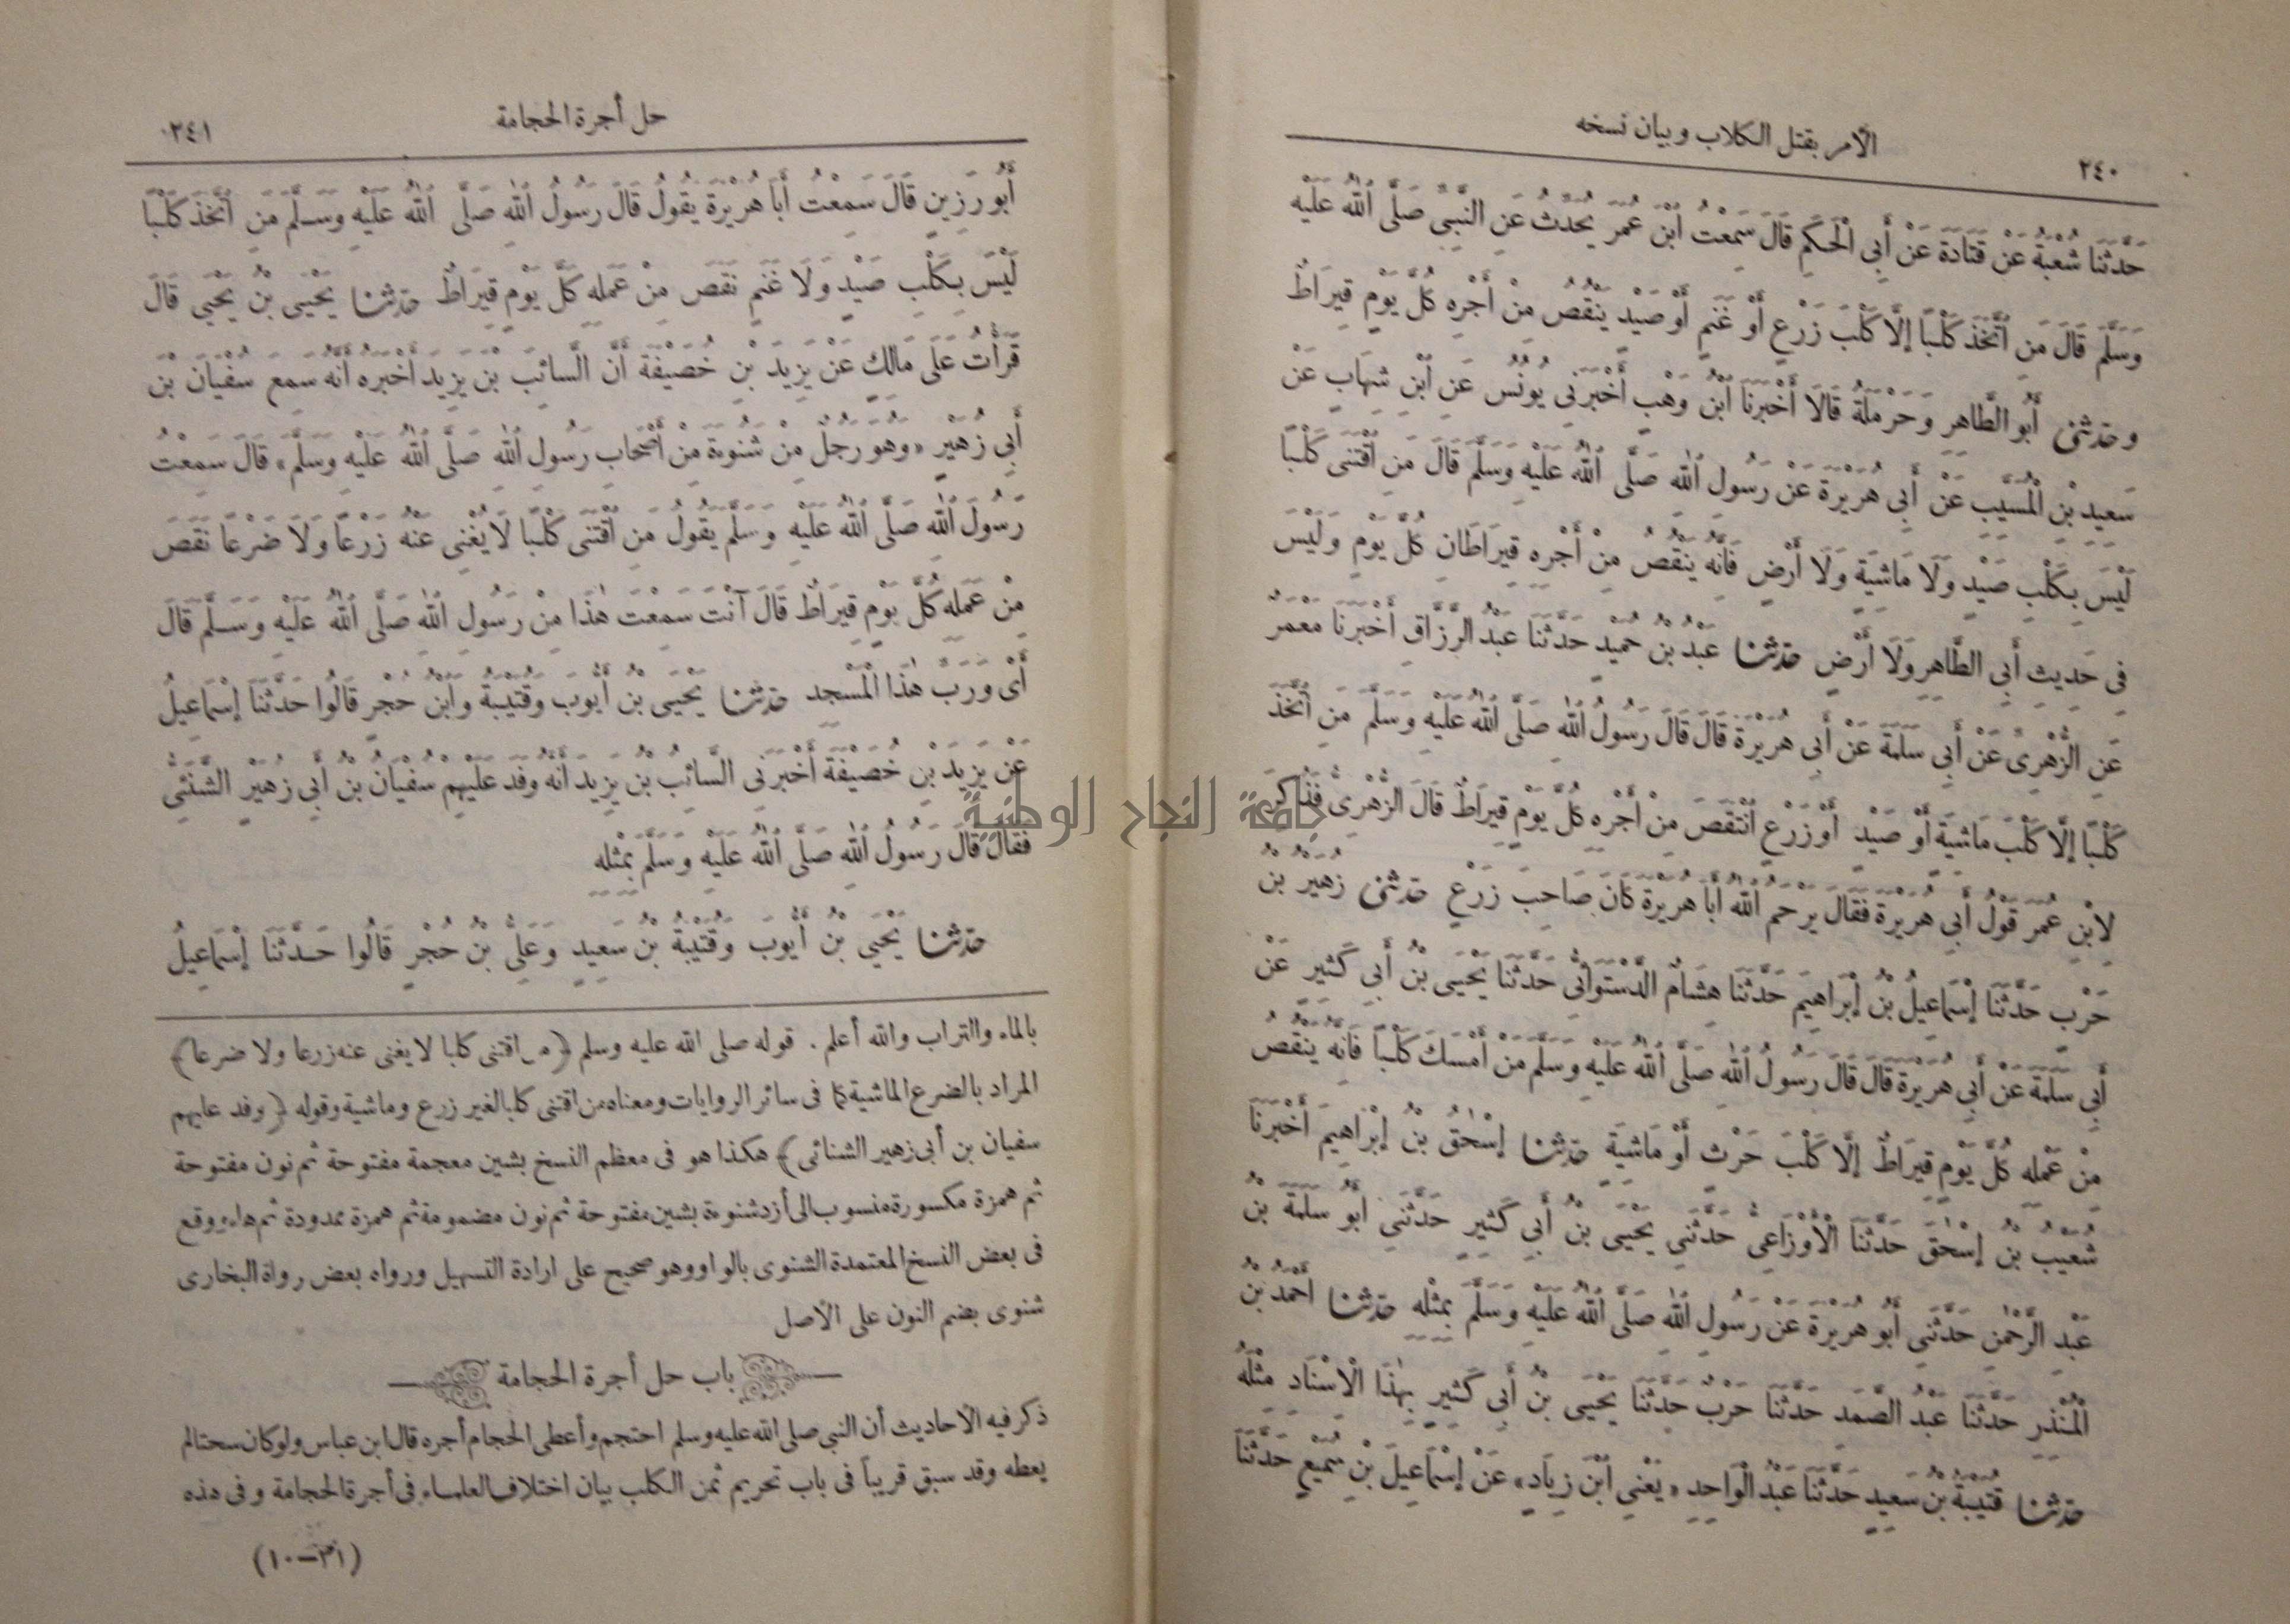 ٢٤٠
الأمر بقتل الكلاب وبيان نسخه
حَدَّثَنَا شُعْبَةُ عَنْ قَتَادَةَ عَنْ أَبِي الْحَكَمِ قَالَ سَمِعْتُ ابْنَ عُمَرَ يُحَدِّثُ عَنِ النَّبِيِّ صَلَّى اللهُ عَلَيْهِ
وَسَلَّمَ قَالَ مَنِ اتَّخَذَ كَلْبًا إِلَّا كَلْبَ زَرْعٍ أَوْ غَنَمٍ أَوْ صَيْدٍ يَنْقُصُ مِنْ أَجْرِهِ كُلَّ يَوْمٍ قِيرَاطٌ
وحدثنى أَبُو الطَّاهِرِ وَحَرْمَلَةُ قَالَا أَخْبَرَنَا ابْنُ وَهْبٍ أَخْبَرَنِي يُونُسُ عَنِ ابْنِ شِهَابٍ عَنْ
سَعِيدِ بْنِ الْمُسَيَّبِ عَنْ أَبِي هُرَيْرَةَ عَنْ رَسُولِ اللهِ صَلَّى اللهُ عَلَيْهِ وَسَلَّمَ قَالَ مَنِ اقْتَنَى كَلْبًا
لَيْسَ بِكَلْبِ صَيْدٍ وَلَا مَاشِيَةٍ وَلَا أَرْضٍ فَإِنَّهُ يَنْقُصُ مِنْ أَجْرِهِ قِيرَاطَانِ كُلَّ يَوْمٍ وَلَيْسَ
فِي حَدِيثِ أَبِي الطَّاهِرِ وَلَا أَرْضٍ حدثنا عَبْدُ بْنُ حُمَيْدٍ حَدَّثَنَا عَبْدُ الرَّزَّاقِ أَخْبَرَنَا مَعْمَرٌ
عَنِ الزُّهْرِيِّ عَنْ أَبِي سَلَمَةَ عَنْ أَبِي هُرَيْرَةَ قَالَ قَالَ رَسُولُ اللهِ صَلَّى اللهُ عَلَيْهِ وَسَلَّمَ مَنِ اتَّخَذَ
كَلْبًا إِلَّا كَلْبَ مَاشِيَةٍ أَوْ صَيْدٍ أَوْ زَرْعٍ انْتَقَصَ مِنْ أَجْرِهِ كُلَّ يَوْمٍ قِيرَاطٌ قَالَ الزُّهْرِيُّ فَذُكِرَ
لِابْنِ عُمَرَ قَوْلُ أَبِي هُرَيْرَةَ فَقَالَ يَرْحَمُ اللهُ أَبَا هُرَيْرَةَ كَانَ صَاحِبَ زَرْعٍ حدثنى زُهَيْرُ بْنُ
حَرْبٍ حَدَّثَنَا إِسْمَاعِيلُ بْنُ إِبْرَاهِيمَ حَدَّثَنَا هِشَامٌ الدَّسْتَوَائِيُّ حَدَّثَنَا يَحْيَى بْنُ أَبِي كَثِيرٍ عَنْ
أَبِي سَلَمَةَ عَنْ أَبِي هُرَيْرَةَ قَالَ قَالَ رَسُولُ اللهِ صَلَّى اللهُ عَلَيْهِ وَسَلَّمَ مَنْ أَمْسَكَ كَلْبًا فَإِنَّهُ يَنْقُصُ
مِنْ عَمَلِهِ كُلَّ يَوْمٍ قِيرَاطٌ إِلَّا كَلْبَ حَرْثٍ أَوْ مَاشِيَةٍ حدثنا إِسْحٰقُ بْنُ إِبْرَاهِيمَ أَخْبَرَنَا
شُعَيْبُ بْنُ إِسْحٰقَ حَدَّثَنَا الْأَوْزَاعِيُّ حَدَّثَنِي يَحْيَى بْنُ أَبِي كَثِيرٍ حَدَّثَنِي أَبُو سَلَمَةَ بْنُ
عَبْدِ الرَّحْمٰنِ حَدَّثَنِي أَبُو هُرَيْرَةَ عَنْ رَسُولِ اللهِ صَلَّى اللهُ عَلَيْهِ وَسَلَّمَ بِمِثْلِهِ حدثنا أَحْمَدُ بْنُ
الْمُنْذِرِ حَدَّثَنَا عَبْدُ الصَّمَدِ حَدَّثَنَا حَرْبٌ حَدَّثَنَا يَحْيَى بْنُ أَبِي كَثِيرٍ بِهٰذَا الْإِسْنَادِ مِثْلَهُ
حدثنا قُتَيْبَةُ بْنُ سَعِيدٍ حَدَّثَنَا عَبْدُ الْوَاحِدِ «يَعْنِي ابْنَ زِيَادٍ» عَنْ إِسْمَاعِيلَ بْنِ سُمَيْعٍ حَدَّثَنَا
حل أجرة الحجامة
٢٤١
أَبُو رَزِينٍ قَالَ سَمِعْتُ أَبَا هُرَيْرَةَ يَقُولُ قَالَ رَسُولُ اللهِ صَلَّى اللهُ عَلَيْهِ وَسَلَّمَ مَنِ اتَّخَذَ كَلْبًا
لَيْسَ بِكَلْبِ صَيْدٍ وَلَا غَنَمٍ نَقَصَ مِنْ عَمَلِهِ كُلَّ يَوْمٍ قِيرَاطٌ حدثنا يَحْيَى بْنُ يَحْيَى قَالَ
قَرَأْتُ عَلَى مَالِكٍ عَنْ يَزِيدَ بْنِ خُصَيْفَةَ أَنَّ السَّائِبَ بْنَ يَزِيدَ أَخْبَرَهُ أَنَّهُ سَمِعَ سُفْيَانَ بْنَ
أَبِي زُهَيْرٍ «وَهُوَ رَجُلٌ مِنْ شَنُوءَةَ مِنْ أَصْحَابِ رَسُولِ اللهِ صَلَّى اللهُ عَلَيْهِ وَسَلَّمَ» قَالَ سَمِعْتُ
رَسُولَ اللهِ صَلَّى اللهُ عَلَيْهِ وَسَلَّمَ يَقُولُ مَنِ اقْتَنَى كَلْبًا لَا يُغْنِي عَنْهُ زَرْعًا وَلَا ضَرْعًا نَقَصَ
مِنْ عَمَلِهِ كُلَّ يَوْمٍ قِيرَاطٌ قَالَ آنْتَ سَمِعْتَ هٰذَا مِنْ رَسُولِ اللهِ صَلَّى اللهُ عَلَيْهِ وَسَلَّمَ قَالَ
أَىْ وَرَبِّ هٰذَا الْمَسْجِدِ حدثنا يَحْيَى بْنُ أَيُّوبَ وَقُتَيْبَةُ وَابْنُ حُجْرٍ قَالُوا حَدَّثَنَا إِسْمَاعِيلُ
عَنْ يَزِيدَ بْنِ خُصَيْفَةَ أَخْبَرَنِي السَّائِبُ بْنُ يَزِيدَ أَنَّهُ وَفَدَ عَلَيْهِمْ سُفْيَانُ بْنُ أَبِي زُهَيْرٍ الشَّنَئِيُّ
فَقَالَ قَالَ رَسُولُ اللهِ صَلَّى اللهُ عَلَيْهِ وَسَلَّمَ بِمِثْلِهِ
حدثنا يَحْيَى بْنُ أَيُّوبَ وَقُتَيْبَةُ بْنُ سَعِيدٍ وَعَلِيُّ بْنُ حُجْرٍ قَالُوا حَدَّثَنَا إِسْمَاعِيلُ
بالماء والتراب والله أعلم . قوله صلى الله عليه وسلم ﴿من اقتنى كلبا لا يغنى عنه زرعا ولا ضرعا﴾
المراد بالضرع الماشية كما فى سائر الروايات ومعناه من اقتنى كلبا لغير زرع وماشية وقوله ﴿وفد عليهم
سفيان بن أبى زهير الشنائى﴾ هكذا هو فى معظم النسخ بشين معجمة مفتوحة ثم نون مفتوحة
ثم همزة مكسورة منسوب الى أزد شنوءة بشين مفتوحة ثم نون مضمومة ثم همزة ممدودة ثم هاء ووقع
فى بعض النسخ المعتمدة الشنوى بالواو وهو صحيح على ارادة التسهيل ورواه بعض رواة البخارى
شنوى بضم النون على الأصل
باب حل أجرة الحجامة
ذكر فيه الأحاديث أن النبى صلى الله عليه وسلم احتجم وأعطى الحجام أجره قال ابن عباس ولو كان سحتا لم
يعطه وقد سبق قريباً فى باب تحريم ثمن الكلب بيان اختلاف العلماء فى أجرة الحجامة وفى هذه
(٣١ — ١٠)
جامعة النجاح الوطنية